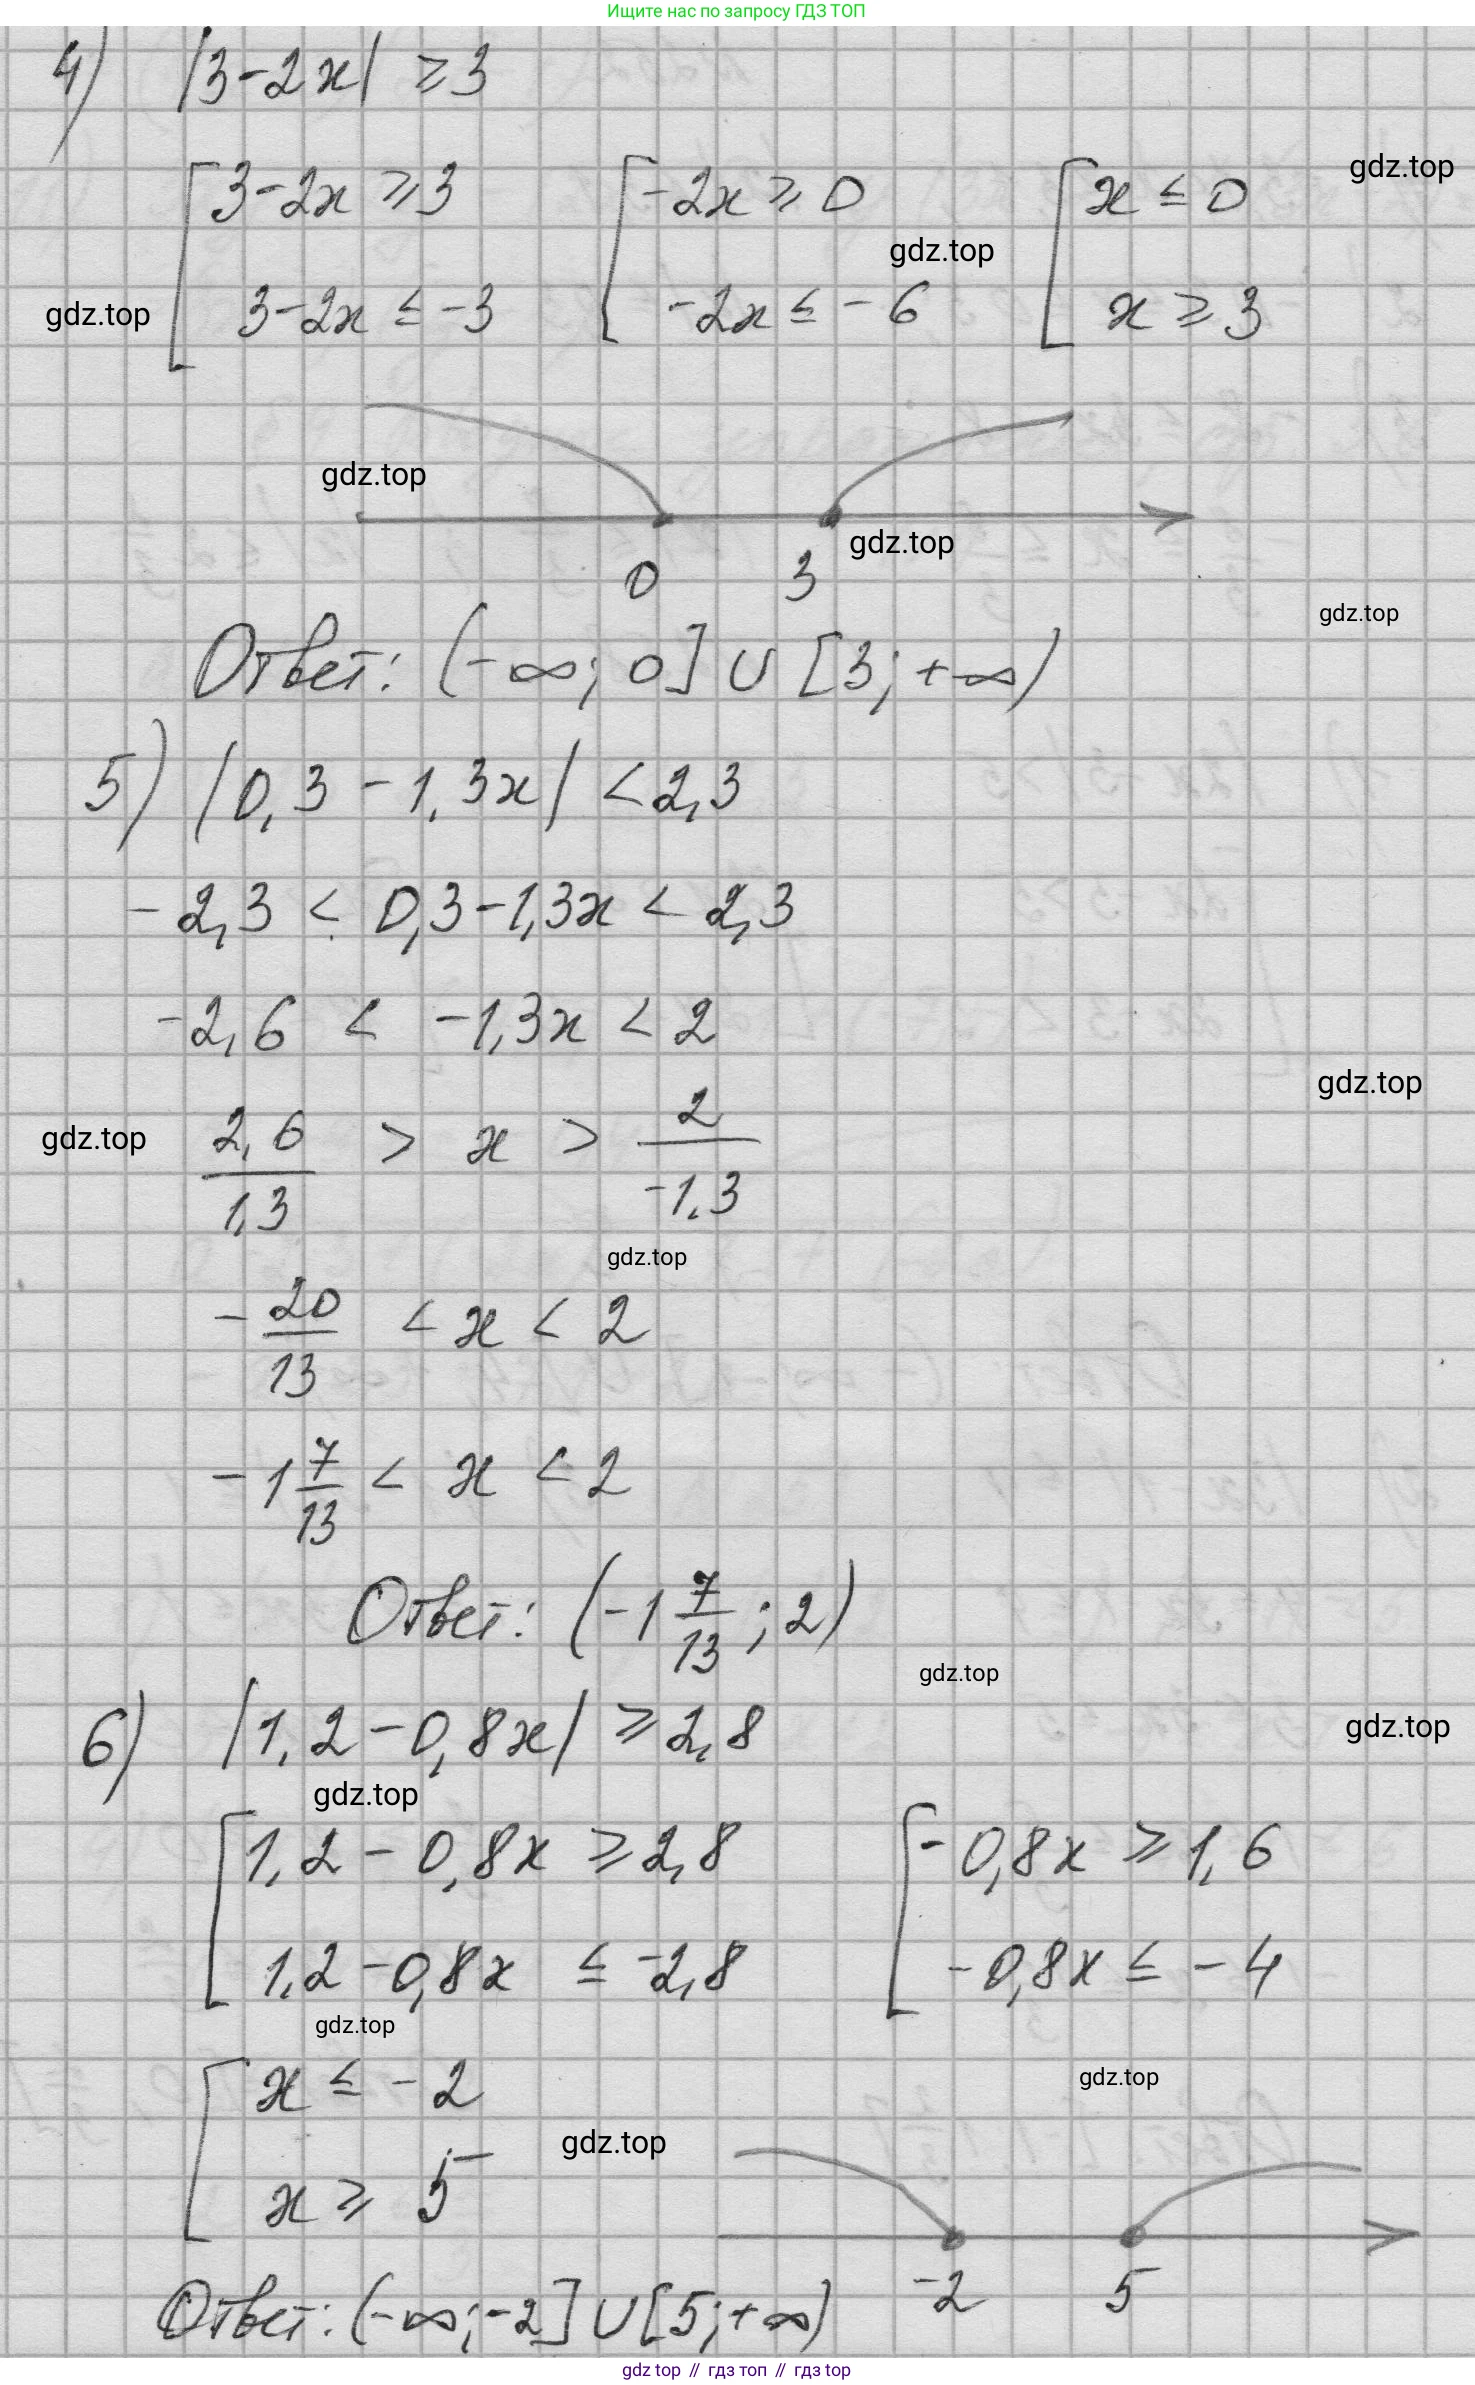 Ищите нас по запросу ГДЗ ТОП
4) |3-2x| ≥3
[3-2x ≥3 [-2x ≥ 0 [x ≤ 0
gdz.top
gdz.top
3-2x ≤ -3 -2x ≤ -6 x ≥ 3
gdz.top
gdz.top
0 3
gdz.top
gdz.top
Ответ: (-∞; 0] ∪ [3; +∞)
5) |0,3 - 1,3x| < 2,3
-2,3 < 0,3-1,3x < 2,3
-2,6 < -1,3x < 2
gdz.top
gdz.top
2,6/1,3 > x > 2/-1,3
gdz.top
-20/13 < x < 2
-1 7/13 < x < 2
Ответ: (-1 7/13; 2)
gdz.top
6) |1,2-0,8x| ≥ 2,8
gdz.top
gdz.top
[1,2 - 0,8x ≥ 2,8 [-0,8x ≥ 1,6
1,2-0,8x ≤ -2,8 -0,8x ≤ -4
gdz.top
[x ≤ -2
gdz.top
gdz.top
x ≥ 5
-2 5
Ответ: (-∞; -2] ∪ [5; +∞)
gdz top // гдз топ // гдз top